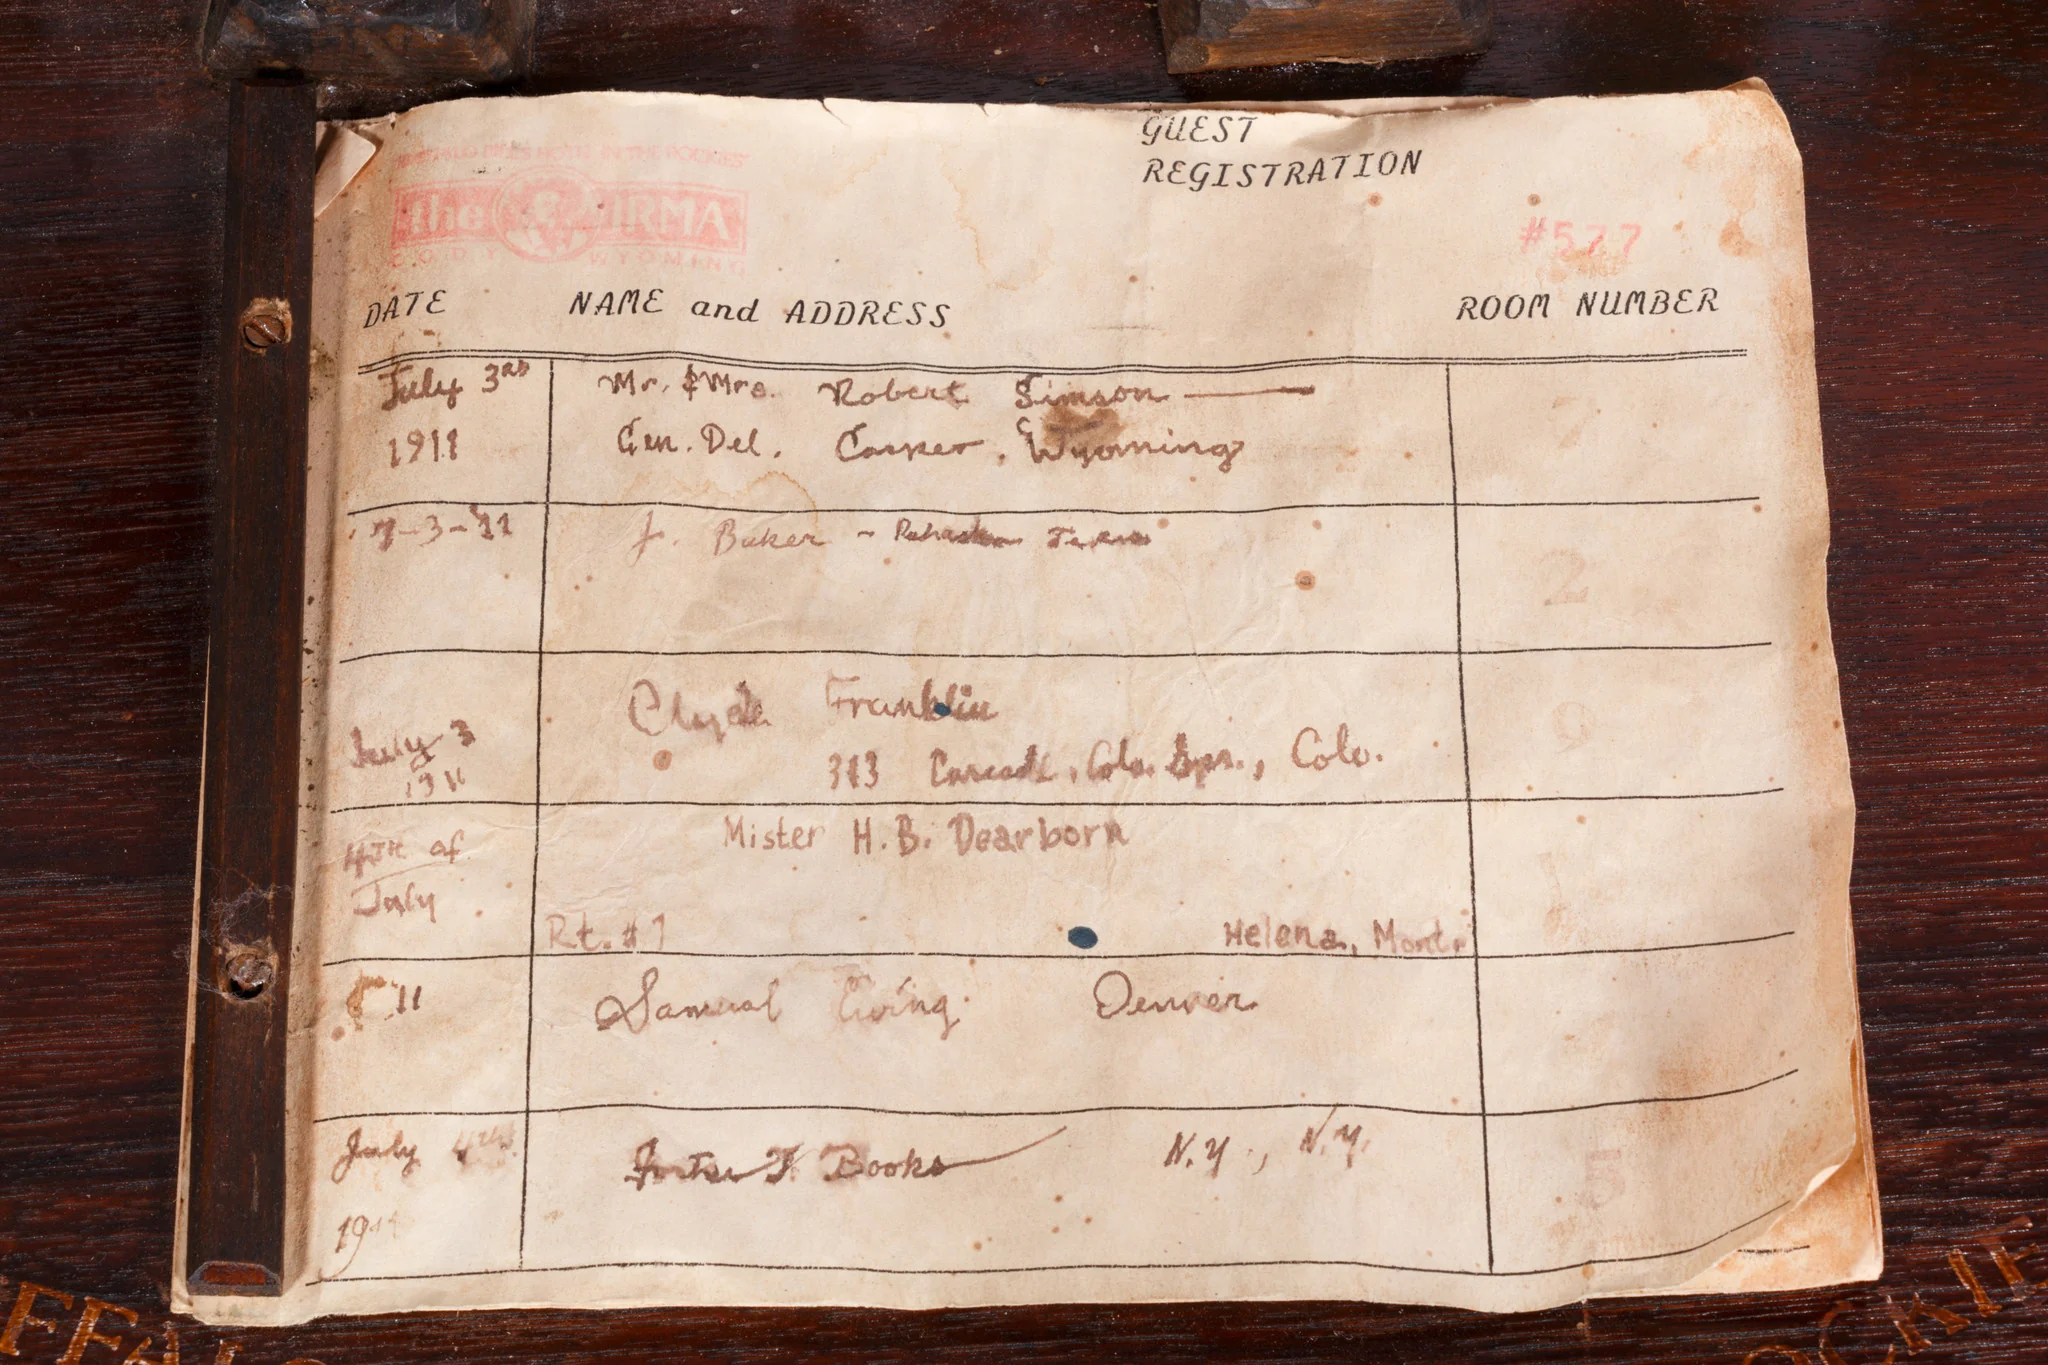 GUEST
REGISTRATION
BUFFALO BILL'S HOTEL IN THE ROCKIES
the IRMA
CODY WYOMING
#577
DATE NAME and ADDRESS ROOM NUMBER
July 3rd Mr. & Mrs. Robert Simson
1911 Gen. Del. Casper, Wyoming
7
7-3-11 J. Baker - Pahaska
2
Clyde Franklin
July 3 313 Cascade, Colo. Spr., Colo.
1911
9
4TH of Mister H. B. Dearborn
July
Rt. #1 Helena, Mont.
11 Samual Ewing Denver
July 4th T. Books N.Y., N.Y.
19
5
FFALO
OCKIE